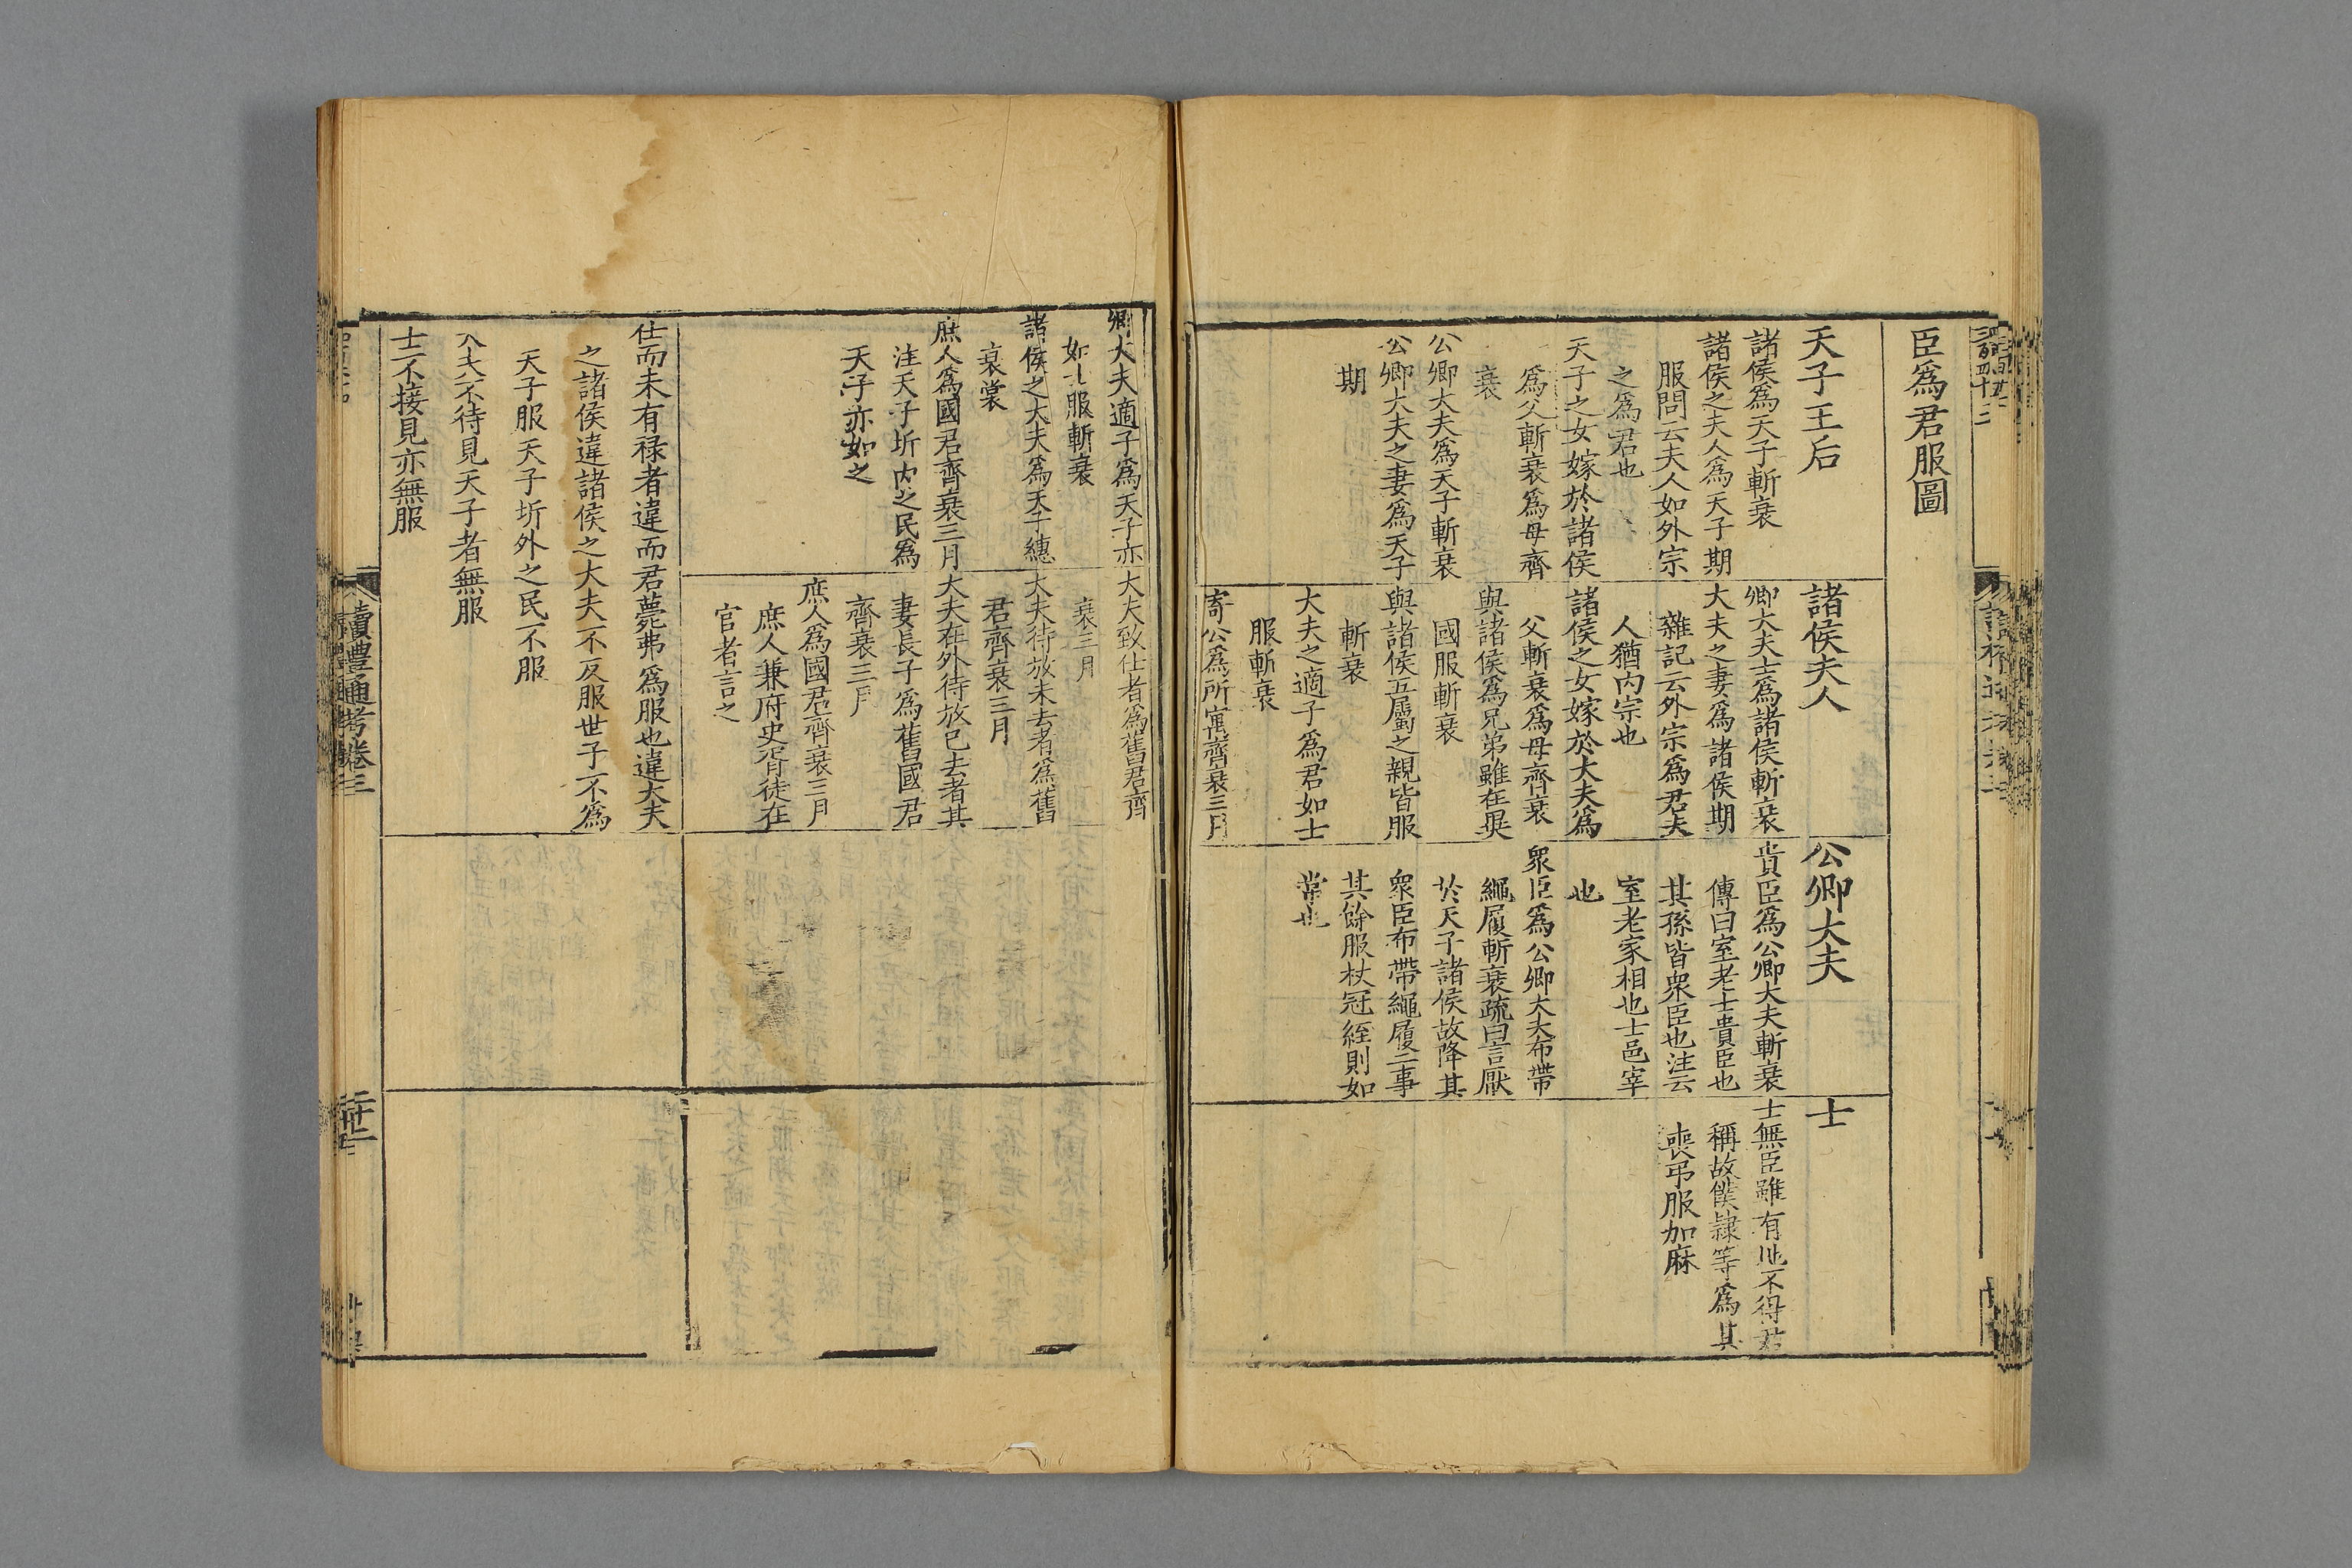 臣爲君服圖
天子王后
諸侯爲天子斬衰
諸侯之夫人爲天子期
服問云夫人如外宗
之爲君也
天子之女嫁於諸侯
爲父斬衰爲母齊
衰
公卿大夫爲天子斬衰
公卿大夫之妻爲天子
期
諸侯夫人
卿大夫士爲諸侯斬衰
大夫之妻爲諸侯期
雜記云外宗爲君夫
人猶內宗也
諸侯之女嫁於大夫爲
父斬衰爲母齊衰
與諸侯爲兄弟雖在異
國服斬衰
與諸侯五屬之親皆服
斬衰
大夫之適子爲君如士
服斬衰
寄公爲所寓齊衰三月
公卿大夫
貴臣爲公卿大夫斬衰
傳曰室老士貴臣也
其孫皆衆臣也注云
室老家相也士邑宰
也
衆臣爲公卿大夫布帶
繩屨斬衰疏曰言厭
於天子諸侯故降其
衆臣布帶繩屨二事
其餘服杖冠絰則如
常也
士
士無臣雖有地不得君
稱故僕隷等爲其
喪弔服加麻
卿大夫適子爲天子亦
如士服斬衰
諸侯之大夫爲天子繐
衰裳
庶人爲國君齊衰三月
注天子圻內之民爲
天子亦如之
大夫致仕者爲舊君齊
衰三月
大夫待放未去者爲舊
君齊衰三月
大夫在外待放已去者其
妻長子爲舊國君
齊衰三月
庶人爲國君齊衰三月
庶人兼府史胥徒在
官者言之
仕而未有祿者違而君薨弗爲服也違大夫
之諸侯違諸侯之大夫不反服世子不爲
天子服天子圻外之民不服
大夫不待見天子者無服
士不接見亦無服
讀禮通考卷三